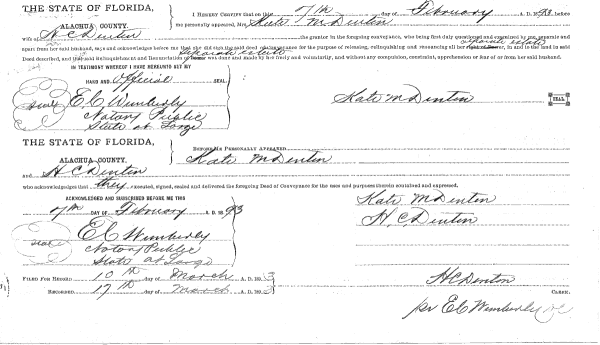 THE STATE OF FLORIDA,
ALACHUA COUNTY.
I HEREBY CERTIFY that on this 7th day of February A. D. 1893 before
me personally appeared, Mrs Kate M Denton
H C Denton the grantor in the foregoing conveyance, who being first duly questioned and examined by me, separate and
separate estate
apart from her said husband, says and acknowledges before me that she did the said deed of conveyance for the purpose of releasing, relinquishing and renouncing all her right of dower, in and to the land in said
separate estate
Deed described, and that said Relinquishment and Renunciation of Dower was done and made by her freely and voluntarily, and without any compulsion, constraint, apprehension or fear of or from her said husband.
IN TESTIMONY WHEREOF I HAVE HEREUNTO SET MY
HAND AND Official SEAL
Seal
E. C. Wimberly
Notary Public
State at Large
Kate M Denton SEAL
THE STATE OF FLORIDA,
ALACHUA COUNTY.
BEFORE ME PERSONALLY APPEARED
Kate M Denton
and H C Denton
who acknowledges that they executed, signed, sealed and delivered the foregoing Deed of Conveyance for the uses and purposes therein contained and expressed.
ACKNOWLEDGED AND SUBSCRIBED BEFORE ME THIS
7th DAY OF February A. D. 1893
Kate M Denton
H. C. Denton
Seal
E C Wimberly
Notary Public
State at Large
FILED FOR RECORD 10th day of March A. D. 1893
RECORDED 17th day of March A. D. 1893
H C Denton CLERK.
per E C Wimberly DC